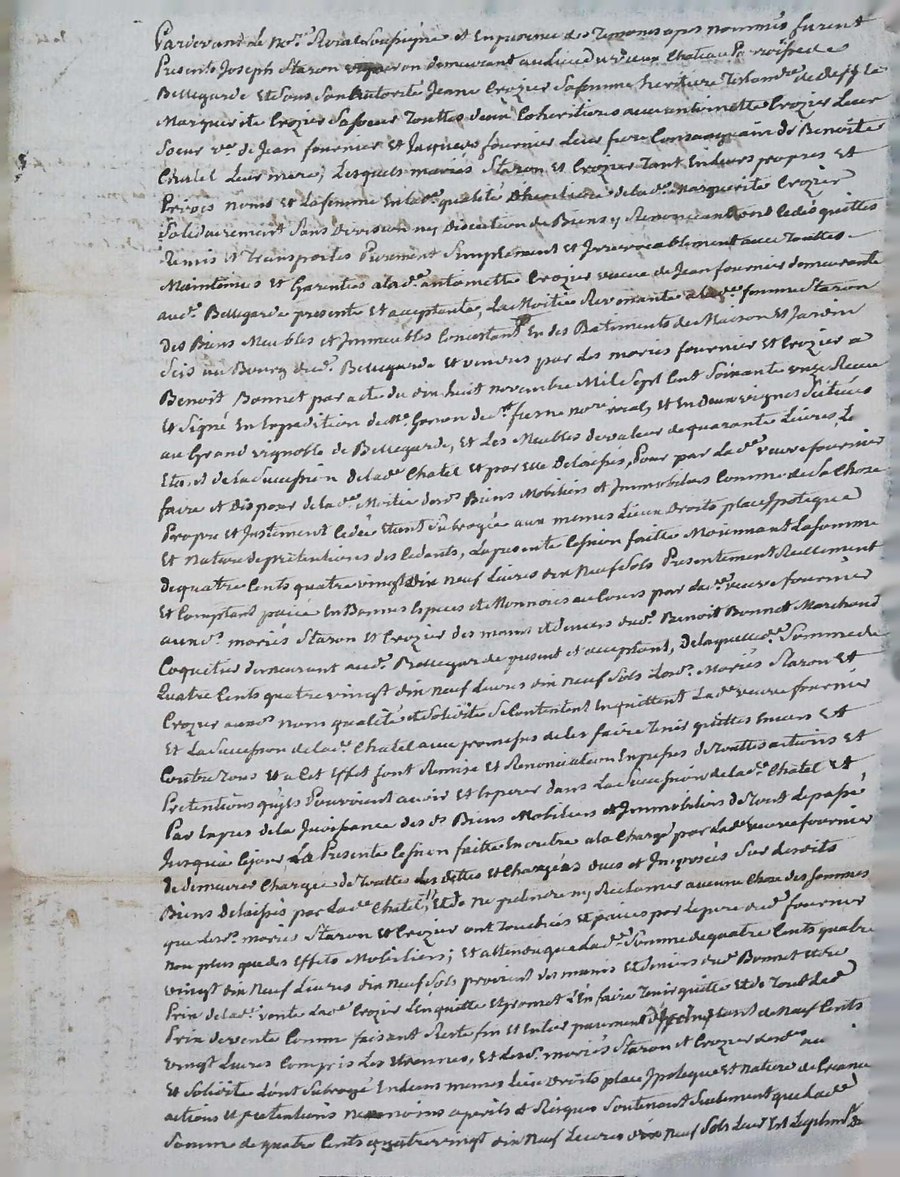 Pardevant Le Nore. Roial Soussigné et En presence des Temoins apres nommés furent
Presents Joseph Staron vigneron demeurant audieu du vieux Chateau Parroisse de
Bellegarde Et sous Son Autorité Jeanne Crozier Sa femme heritiere Testamre. de deffte. La
Marguerite Crozier Sa soeur Touttes deux Coheritieres avec antoinette Crozier Leur
Soeur ve. de Jean fournier Et Jacques fournier Leur frere Consanguain de Benoite
Chatel Leur mere; Lesquels mariés Staron Et Crozier Tant En Leurs propres Et
Privés noms et La femme En lade. qualité d'heritiere de lade. Marguerite Crozier
Solidairement Sans Division ny Discution de Biens y Renonceant ont Cedés quittes
Remis et transportés Purement Simplement et Irrevocablement avec Touttes
Maintenues et Garenties a lade. antoinette Crozier veuve de Jean fournier demeurante
aud. Bellegarde presente Et acceptante, La Moitié Revenante a lade. femme Staron
des Biens Meubles et Immeubles Consistant En des Batiments de Maison Et Jardin
Scis au Bourg dud. Bellegarde Et vendus par Les mariés fournier Et Crozier a
Benoit Bonnet par acte du dix huit novembre Mil Sept Cent Soixante onze Receu
Et Signé En Expedition de Me. Gonon de St. nore. roial, et En Deux vignes Scituées
au Grand vignoble de Bellegarde, Et Les Meubles de valeur de quarante Livres, Le
de La Succession de lade. Chatel Et par Elle Delaissés, Pour par Lade. veuve fournier
faire et Disposer de lade. Moitié desd. Biens Mobiliers et Immobiliers Comme de Sa Chose
Propre et Justement Cedée Etant Subrogée aux memes Lieux Droits place Ipoteque
Et Nature de pretentions des Cedants, La presente Cession faitte Moiennant La Somme
de quatre Cents quatre vingt dix neuf Livres dix Neuf Sols Presentement Reellement
Et Comptant paiée En Bonnes Especes de Monnoies au Cours par Lade. veuve fournier
auxd. mariés Staron Et Crozier des mains et deniers dud. Benoit Bonnet Marchand
Coquetier demeurant aud. Bellegarde present et acceptant, De laquelle de. Somme de
Quatre Cents quatre vingt dix neuf Livres dix neuf Sols Lesd. Mariés Staron Et
Crozier auxd. noms qualité et Solidité Se Contentent En quittent Lade. veuve fournier
Et La Succession de lade. Chatel avec promesse de Les faire Tenir quittes Envers Et
Contre Tous Et a Cet Effet font Remise et Renonciation Expresse de Touttes actions Et
Pretentions qu'ils Pourroient avoir Et Esperer dans La Succession de lade. Chatel Et
Par Expres de la Jouissance des ds. Biens Mobiliers et Immobiliers de Tout Le passé
Jusqu'a Ce jour La Presente Cession faitte En outre a la Charge par Lade. veuve fournier
De demeurer Chargée de Touttes Les dettes et Charges dues et Imposées Sur Lesdits
Biens Delaissés par Lade. Chatel, Et de Ne pretendre ny Reclamer aucune Chose des Sommes
que Lesd. mariés Staron Et Crozier ont Touchées Et paiées par Le pere dud. fournier
Non plus que des Effets Mobiliers; Et attendu que lade. Somme de quatre Cents quatre
vingt dix Neuf Livres dix Neuf Sols provient des mains Et deniers dud. Bonnet Et du
Prix de lade. vente Lade. Crozier L'en quitte Et promet L'en faire Tenir quitte Et de Tout Led.
Prix de vente Comme faisant Reste fin et Entier paiement de Neuf Cents
vingt Livres Compris Les Etrennes, Et Lesd. mariés Staron et Crozier au
Et Solidité L'ont Subrogé En Leurs memes Lieu Droits place Ipoteque Et Nature de Creance
actions Et pretentions Neanmoins a perils et Risques Soutenant Seulement que Lade.
Somme de quatre Cents quatre vingt dix Neuf Livres dix Neuf Sols Leur Est